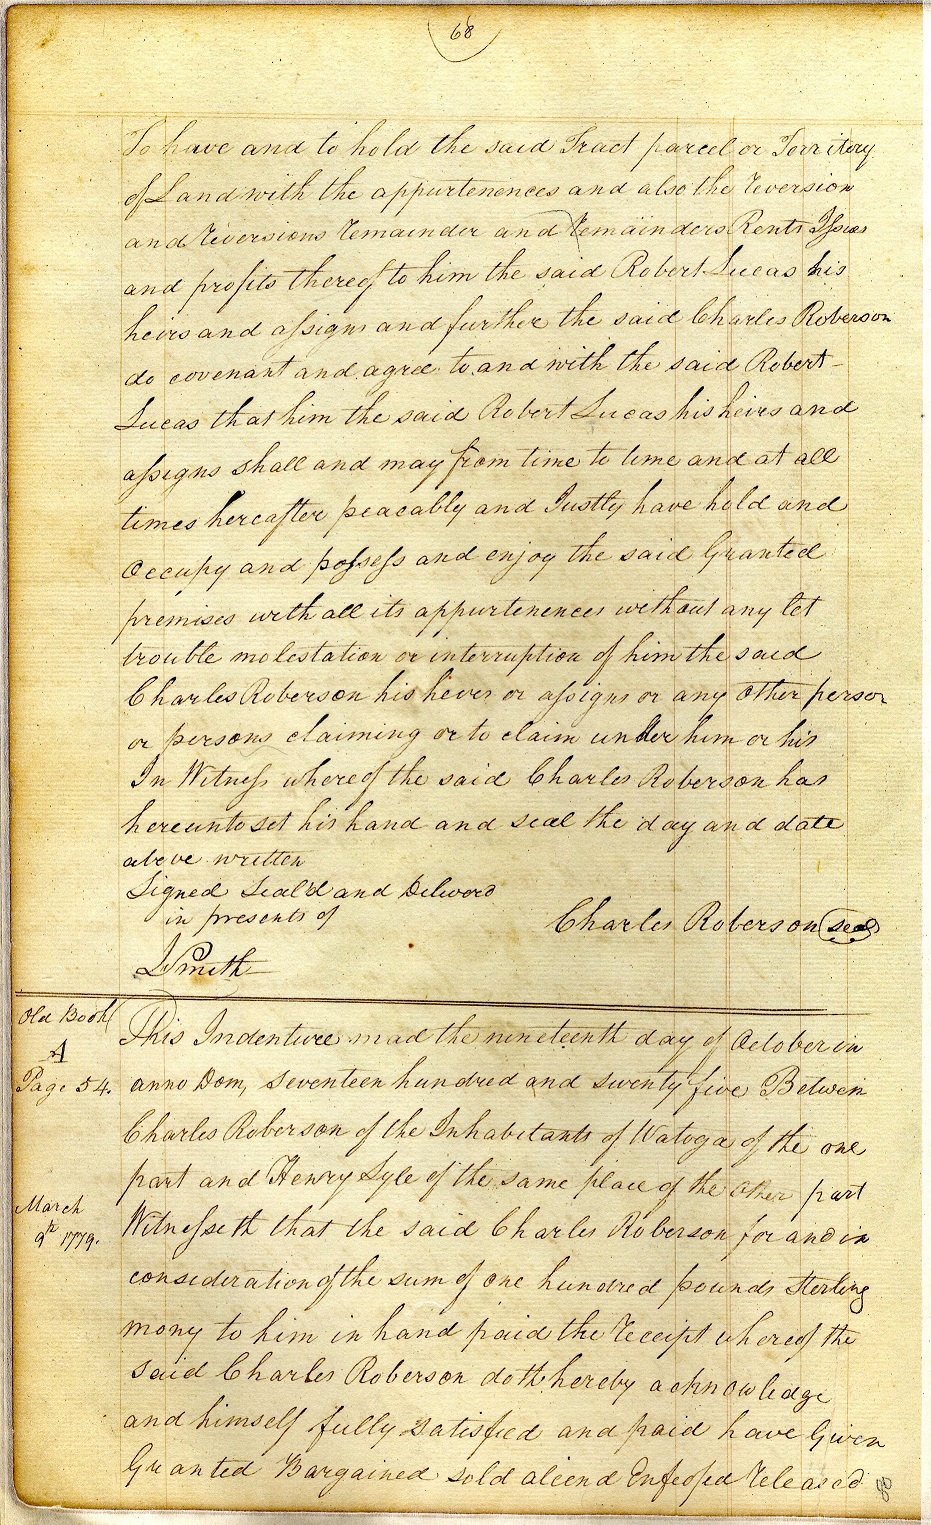 68
To have and to hold the said Tract parcel or Territory
of Land with the appurtenences and also the reversion
and reversions remainder and remainders Rents Issues
and profits thereof to him the said Robert Lucas his
heirs and assigns and further the said Charles Roberson
do covenant and agree to and with the said Robert
Lucas that him the said Robert Lucas his heirs and
assigns shall and may from time to time and at all
times hereafter peacably and Justly have hold and
occupy and possess and enjoy the said Granted
premises with all its appurtenences without any let
trouble molestation or interruption of him the said
Charles Roberson his heirs or assigns or any other person
or persons claiming or to claim under him or his
In Witness whereof the said Charles Roberson has
hereunto set his hand and seal the day and date
above written
Signed Seal'd and Deliverd
in presents of
Charles Roberson seal
J Smith
Old Book
A
Page 54.
This Indenture mad the nineteenth day of October in
anno Dom, seventeen hundred and swenty five Betwein
Charles Roberson of the Inhabitants of Watoga of the one
part and Henry Lyle of the same place of the other part
March
9th 1779.
Witnesseth that the said Charles Roberson for and in
consideration of the sum of one hundred pounds sterling
mony to him in hand paid the receipt whereof the
said Charles Roberson doth hereby acknowledge
and himself fully satisfied and paid have Given
Granted Bargained sold aliend Enfeofed released